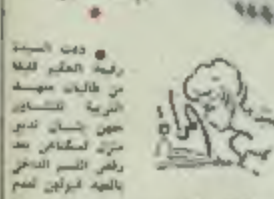 ● دعت السيدة
رقية الحكيم
من طالبات معهد
التربية للتشاور
بشأن تدبير
منزل لسكناهن بعد
رفض القسم الداخلي
بالمعهد قبولهن لعدم